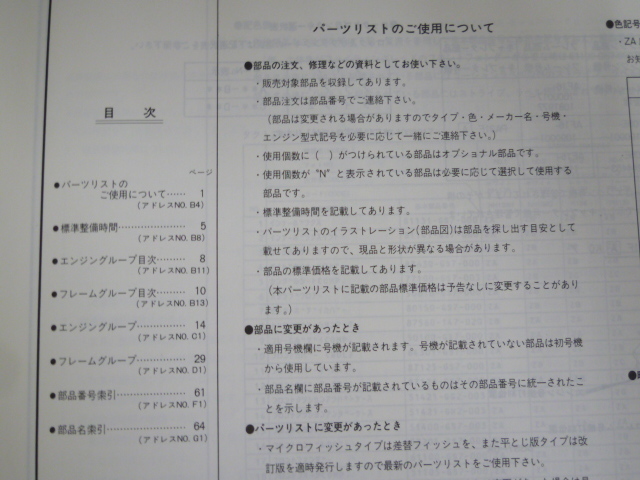 目 次
ページ
●パーツリストの
ご使用について…… 1
(アドレスNO. B4)
●標準整備時間………………… 5
(アドレスNO. B8)
●エンジングループ目次……… 8
(アドレスNO. B11)
●フレームグループ目次……… 10
(アドレスNO. B13)
●エンジングループ…………… 14
(アドレスNO. C1)
●フレームグループ…………… 29
(アドレスNO. D1)
●部品番号索引………………… 61
(アドレスNO. F1)
●部品名索引…………………… 64
(アドレスNO. G1)
パーツリストのご使用について
●部品の注文、修理などの資料としてお使い下さい。
・販売対象部品を収録してあります。
・部品注文は部品番号でご連絡下さい。
(部品は変更される場合がありますのでタイプ・色・メーカー名・号機・
エンジン型式記号を必要に応じて一緒にご連絡下さい。)
・使用個数に( )がつけられている部品はオプショナル部品です。
・使用個数が“N”と表示されている部品は必要に応じて選択して使用する
部品です。
・標準整備時間を記載してあります。
・パーツリストのイラストレーション(部品図)は部品を探し出す目安として
載せてありますので、現品と形状が異なる場合があります。
・部品の標準価格を記載してあります。
(本パーツリストに記載の部品標準価格は予告なしに変更することがあり
ます。)
●部品に変更があったとき
・適用号機欄に号機が記載されます。号機が記載されていない部品は初号機
から使用しています。
・部品名欄に部品番号が記載されているものはその部品番号に統一されたこ
とを示します。
●パーツリストに変更があったとき
・マイクロフィッシュタイプは差替フィッシュを、また平とじ版タイプは改
訂版を適時発行しますので最新のパーツリストをご使用下さい。
●色記号
・ZA
お知